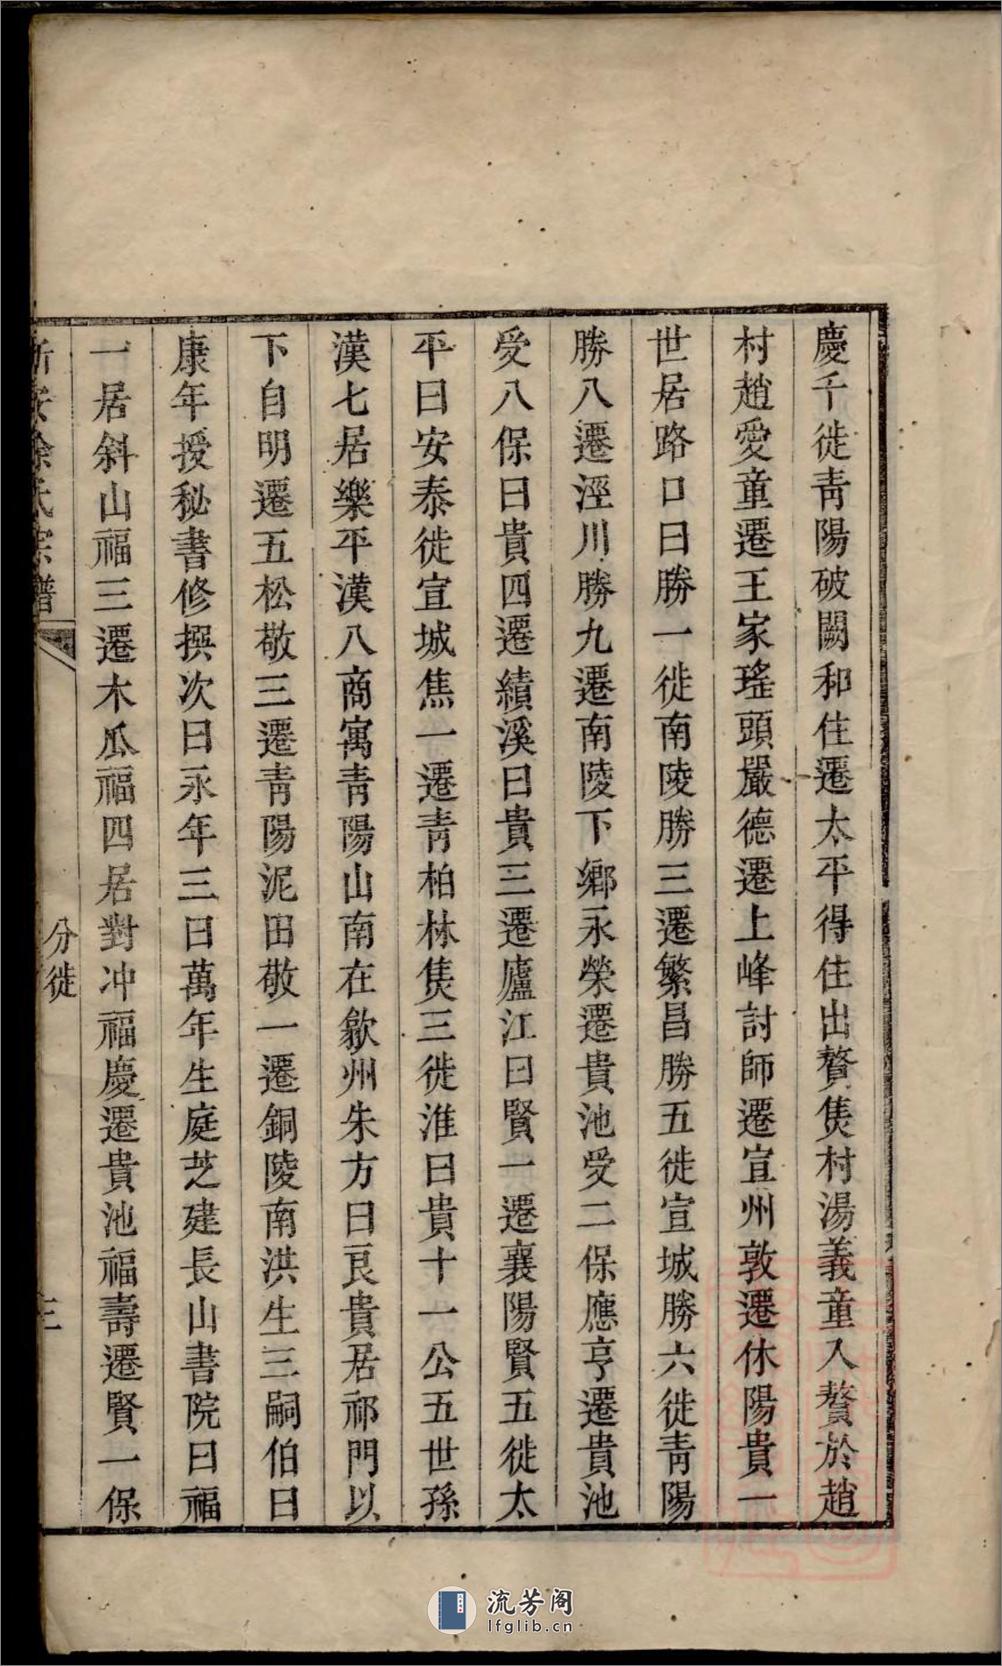 慶千徙青陽破關和住遷太平得住出贅隻村湯義童入贅於趙
村趙愛童遷王家瑤頭嚴德遷上峰討師遷宣州敦遷休陽貴一
世居路口曰勝一徙南陵勝三遷繁昌勝五徙宣城勝六徙青陽
勝八遷涇川勝九遷南陵下鄉永榮遷貴池受二保應亨遷貴池
受八保曰貴四遷績溪曰貴三遷廬江曰賢一遷襄陽賢五徙太
平曰安泰徙宣城焦一遷青柏林隻三徙淮曰貴十一公五世孫
漢七居樂平漢八商寓青陽山南在歙州朱方曰良貴居祁門以
下自明遷五松敬三遷青陽泥田敬一遷銅陵南洪生三嗣伯曰
康年授秘書修撰次曰永年三曰萬年生庭芝建長山書院曰福
一居斜山福三遷木瓜福四居對冲福慶遷貴池福壽遷賢一保
新安徐氏宗譜
分徙
三
流芳阁
lfglib.cn